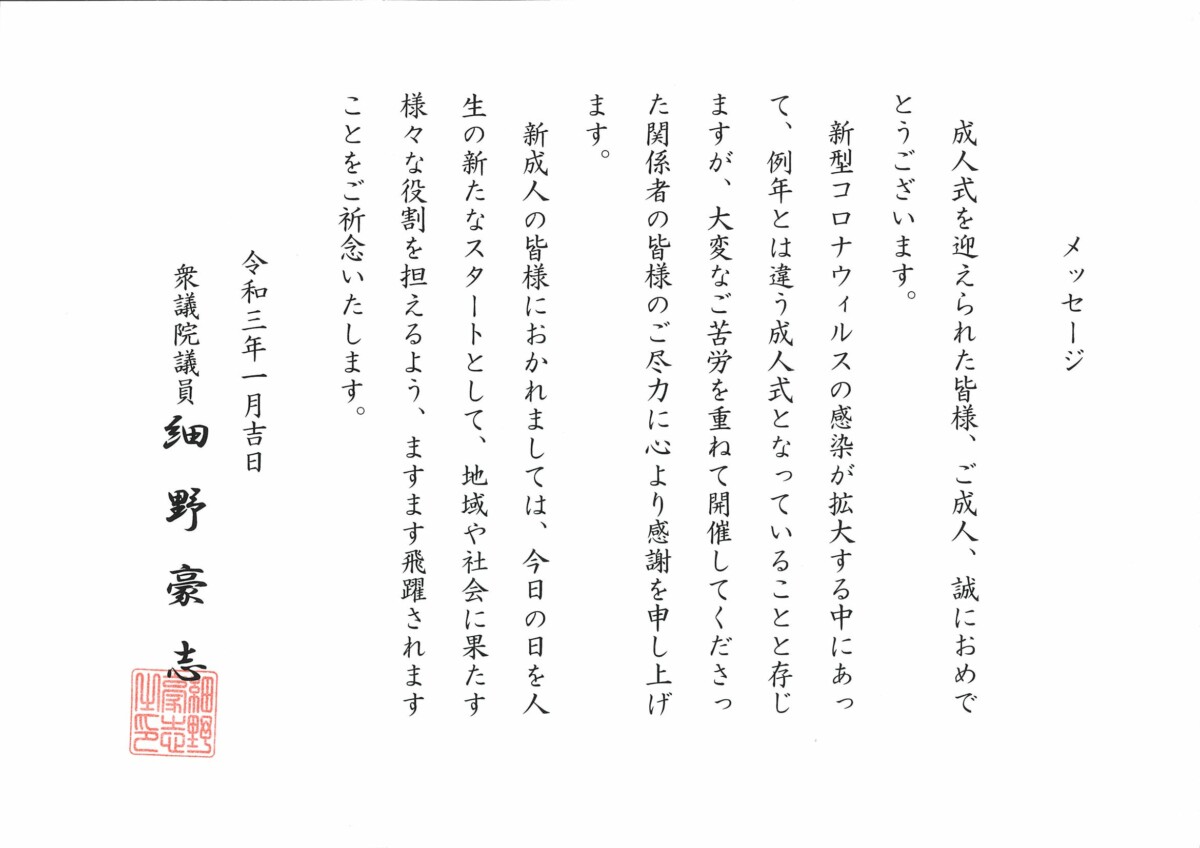 メッセージ
成人式を迎えられた皆様、ご成人、誠におめで
とうございます。
新型コロナウィルスの感染が拡大する中にあっ
て、例年とは違う成人式となっていることと存じ
ますが、大変なご苦労を重ねて開催してくださっ
た関係者の皆様のご尽力に心より感謝を申し上げ
ます。
新成人の皆様におかれましては、今日の日を人
生の新たなスタートとして、地域や社会に果たす
様々な役割を担えるよう、ますます飛躍されます
ことをご祈念いたします。
令和三年一月吉日
衆議院議員 細野豪志
細野
豪志
之印